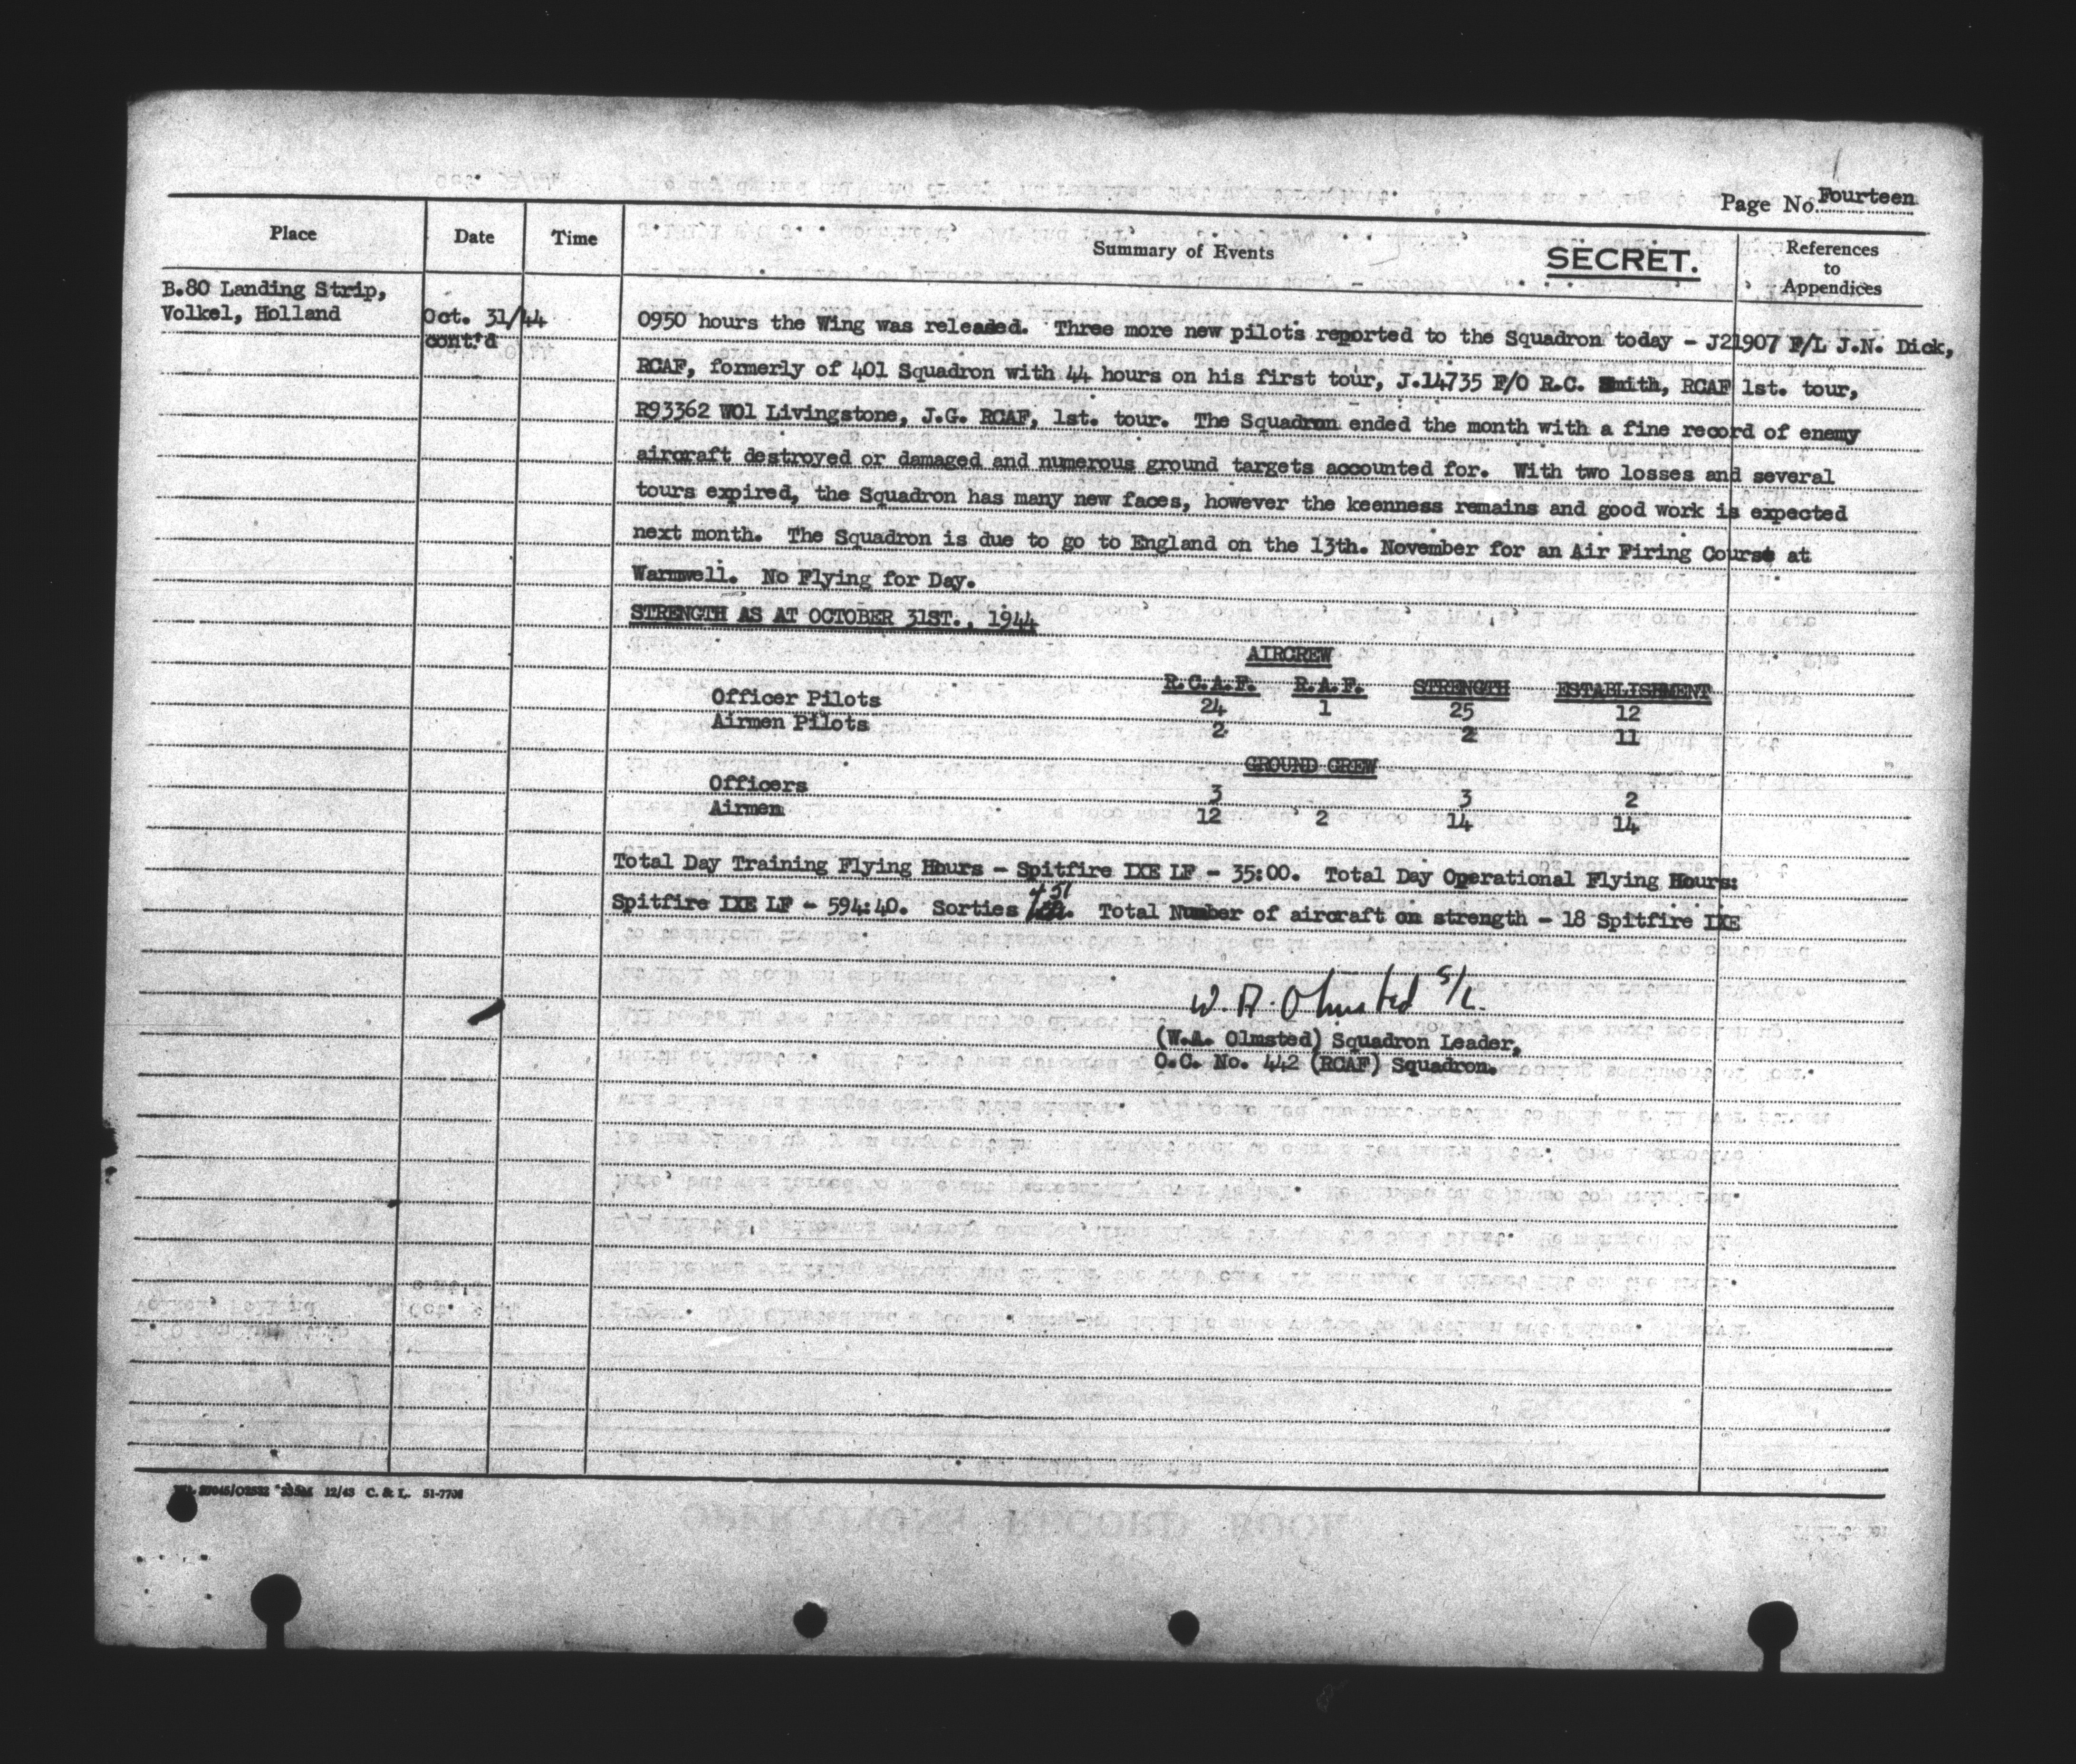 Page No. Fourteen
Place Date Time Summary of Events SECRET. References to Appendices
B.80 Landing Strip,
Volkel, Holland
Oct. 31/44
cont'd
0950 hours the Wing was released. Three more new pilots reported to the Squadron today - J21907 F/L J.N. Dick,
RCAF, formerly of 401 Squadron with 44 hours on his first tour, J.14735 F/O R.C. Smith, RCAF 1st. tour,
R93362 WO1 Livingstone, J.G. RCAF, 1st. tour. The Squadron ended the month with a fine record of enemy
aircraft destroyed or damaged and numerous ground targets accounted for. With two losses and several
tours expired, the Squadron has many new faces, however the keenness remains and good work is expected
next month. The Squadron is due to go to England on the 13th. November for an Air Firing Course at
Warmwell. No Flying for Day.
STRENGTH AS AT OCTOBER 31ST., 1944
AIRCREW
R.C.A.F. R.A.F. STRENGTH ESTABLISHMENT
Officer Pilots 24 1 25 12
Airmen Pilots 2 2 11
GROUND CREW
Officers 3 3 2
Airmen 12 2 14 14
Total Day Training Flying Hours - Spitfire IXE LF - 35:00. Total Day Operational Flying Hours:
Spitfire IXE LF - 594:40. Sorties 451 Total Number of aircraft on strength - 18 Spitfire IXE
W. A. Olmsted S/L.
(W.A. Olmsted) Squadron Leader,
O.C. No. 442 (RCAF) Squadron.
12/43 C. & L.